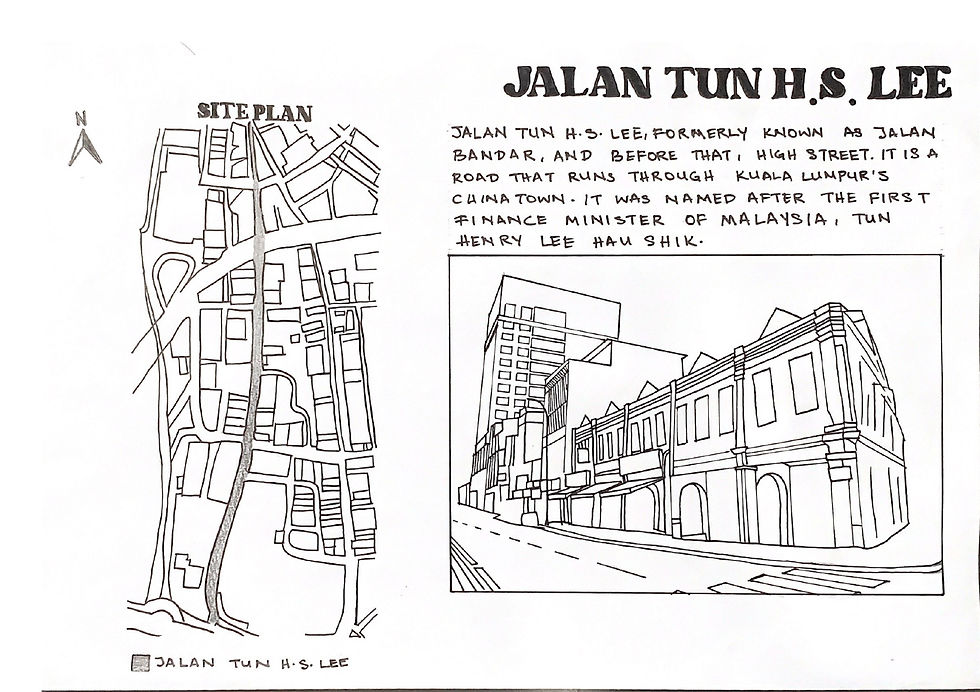 JALAN TUN H.S. LEE
SITE PLAN
N
JALAN TUN H.S. LEE, FORMERLY KNOWN AS JALAN
BANDAR, AND BEFORE THAT, HIGH STREET. IT IS A
ROAD THAT RUNS THROUGH KUALA LUMPUR'S
CHINATOWN. IT WAS NAMED AFTER THE FIRST
FINANCE MINISTER OF MALAYSIA, TUN
HENRY LEE HAU SHIK.
JALAN TUN H.S. LEE